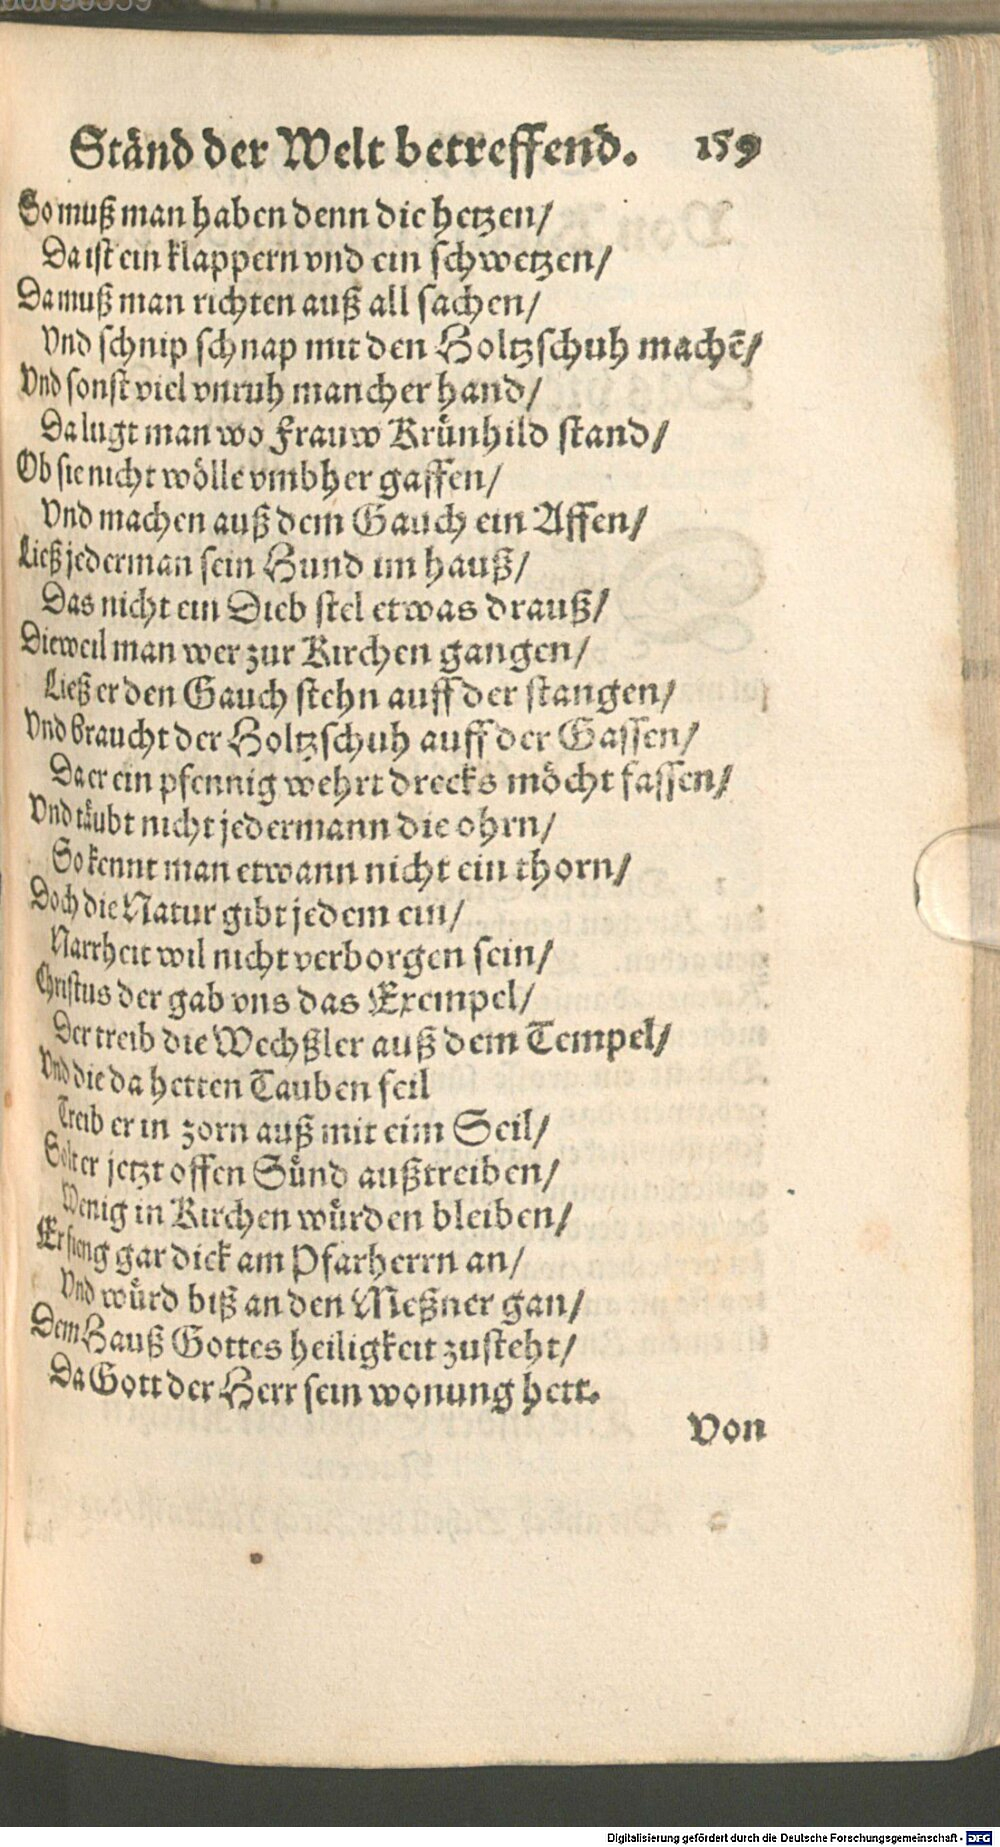 Ständ der Welt betreffend. 159
So muß man haben denn die hetzen/
Da ist ein klappern vnd ein schwetzen/
Da muß man richten auß all sachen/
Vnd schnip schnap mit den Holtzschuh machẽ/
Vnd sonst viel vnruh mancher hand/
Da lugt man wo Frauw Krünhild stand/
Ob sie nicht wölle vmbher gaffen/
Vnd machen auß dem Gauch ein Affen/
Ließ jederman sein Hund im hauß/
Das nicht ein Dieb stel etwas drauß/
Dieweil man wer zur Kirchen gangen/
Ließ er den Gauch stehn auff der stangen/
Vnd braucht der Holtzschuh auff der Gassen/
Da er ein pfennig wehrt drecks möcht fassen/
Vnd täubt nicht jedermann die ohrn/
So kennt man etwann nicht ein thorn/
Doch die Natur gibt jedem ein/
Narrheit wil nicht verborgen sein/
Christus der gab vns das Exempel/
Der treib die Wechßler auß dem Tempel/
Vnd die da hetten Tauben feil
Treib er in zorn auß mit eim Seil/
Solt er jetzt offen Sünd außtreiben/
Wenig in Kirchen würden bleiben/
Er fieng gar dick am Pfarherrn an/
Vnd würd biß an den Meßner gan/
Dem Hauß Gottes heiligkeit zusteht/
Da Gott der Herr sein wonung hett.
Von
Digitalisierung gefördert durch die Deutsche Forschungsgemeinschaft - DFG